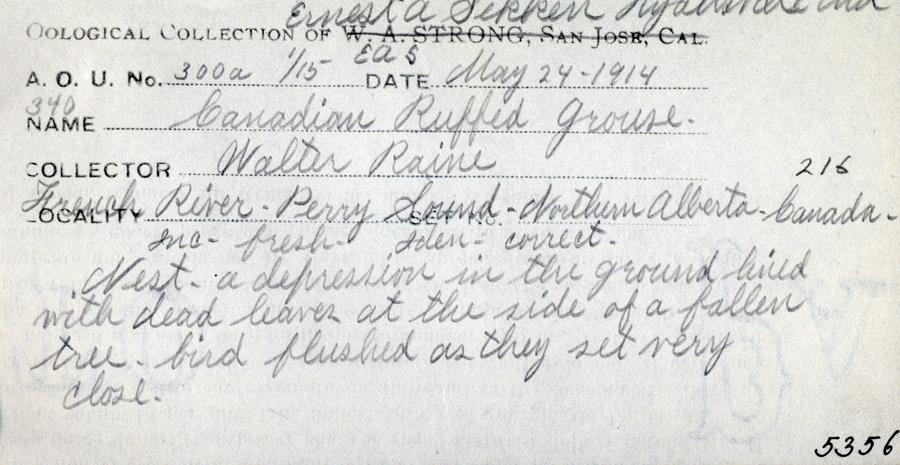 Ernest A
OOLOGICAL COLLECTION OF W. A. STRONG, SAN JOSE, CAL.
EAS
A. O. U. No. 300a 1/15 DATE May 24-1914
340
NAME Canadian Ruffed Grouse.
COLLECTOR Walter Raine 216
LOCALITY French River - Perry Sound - Northern Alberta - Canada -
Inc- fresh- Iden- correct.
Nest- a depression in the ground lined
with dead leaves at the side of a fallen
tree- bird flushed as they set very
close.
5356